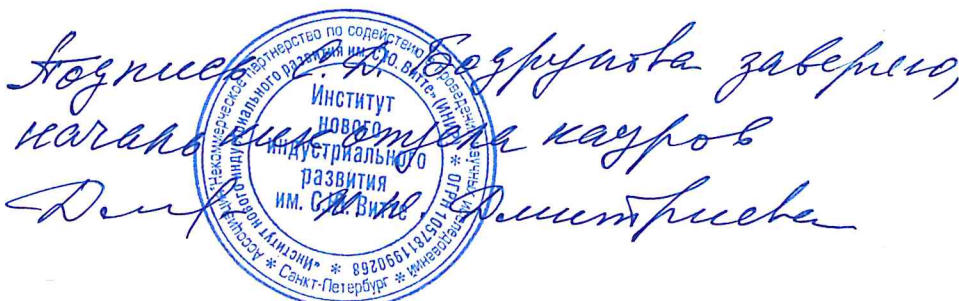 Подпись С.Д. Бодрунова заверяю,
начальник отдела кадров
Дмитриева
Ассоциация "Некоммерческое партнерство по содействию в проведении научных исследований
«Институт нового индустриального развития им. С.Ю. Витте» (ИНИР) * ОГРН 1057811990268 *
* Санкт-Петербург *
Институт
нового
индустриального
развития
им. С.Ю. Витте